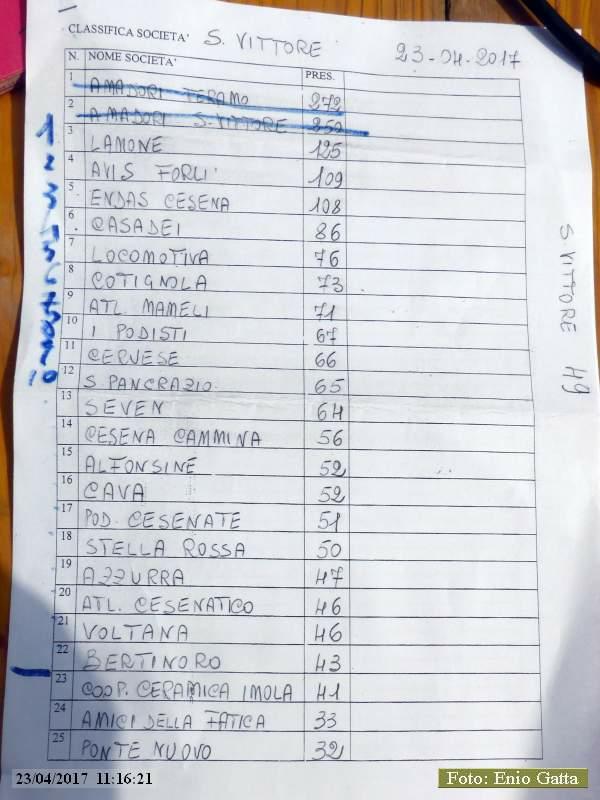 CLASSIFICA SOCIETA' S. VITTORE 23-04-2017
N. NOME SOCIETA' PRES.
1 AMADORI TERAMO 272
2 AMADORI S. VITTORE 252
3 LAMONE 125
4 AVIS FORLI' 109
5 ENDAS CESENA 108
6 CASADEI 86
7 LOCOMOTIVA 76
8 COTIGNOLA 73
9 ATL. MAMELI 71
10 I PODISTI 67
11 CERVESE 66
12 S. PANCRAZIO 65
13 SEVEN 64
14 CESENA CAMMINA 56
15 ALFONSINE 52
16 CAVA 52
17 POD. CESENATE 51
18 STELLA ROSSA 50
19 AZZURRA 47
20 ATL. CESENATICO 46
21 VOLTANA 46
22 BERTINORO 43
23 COOP. CERAMICA IMOLA 41
24 AMICI DELLA FATICA 33
25 PONTE NUOVO 32
S. VITTORE 49
23/04/2017 11:16:21
Foto: Enio Gatta